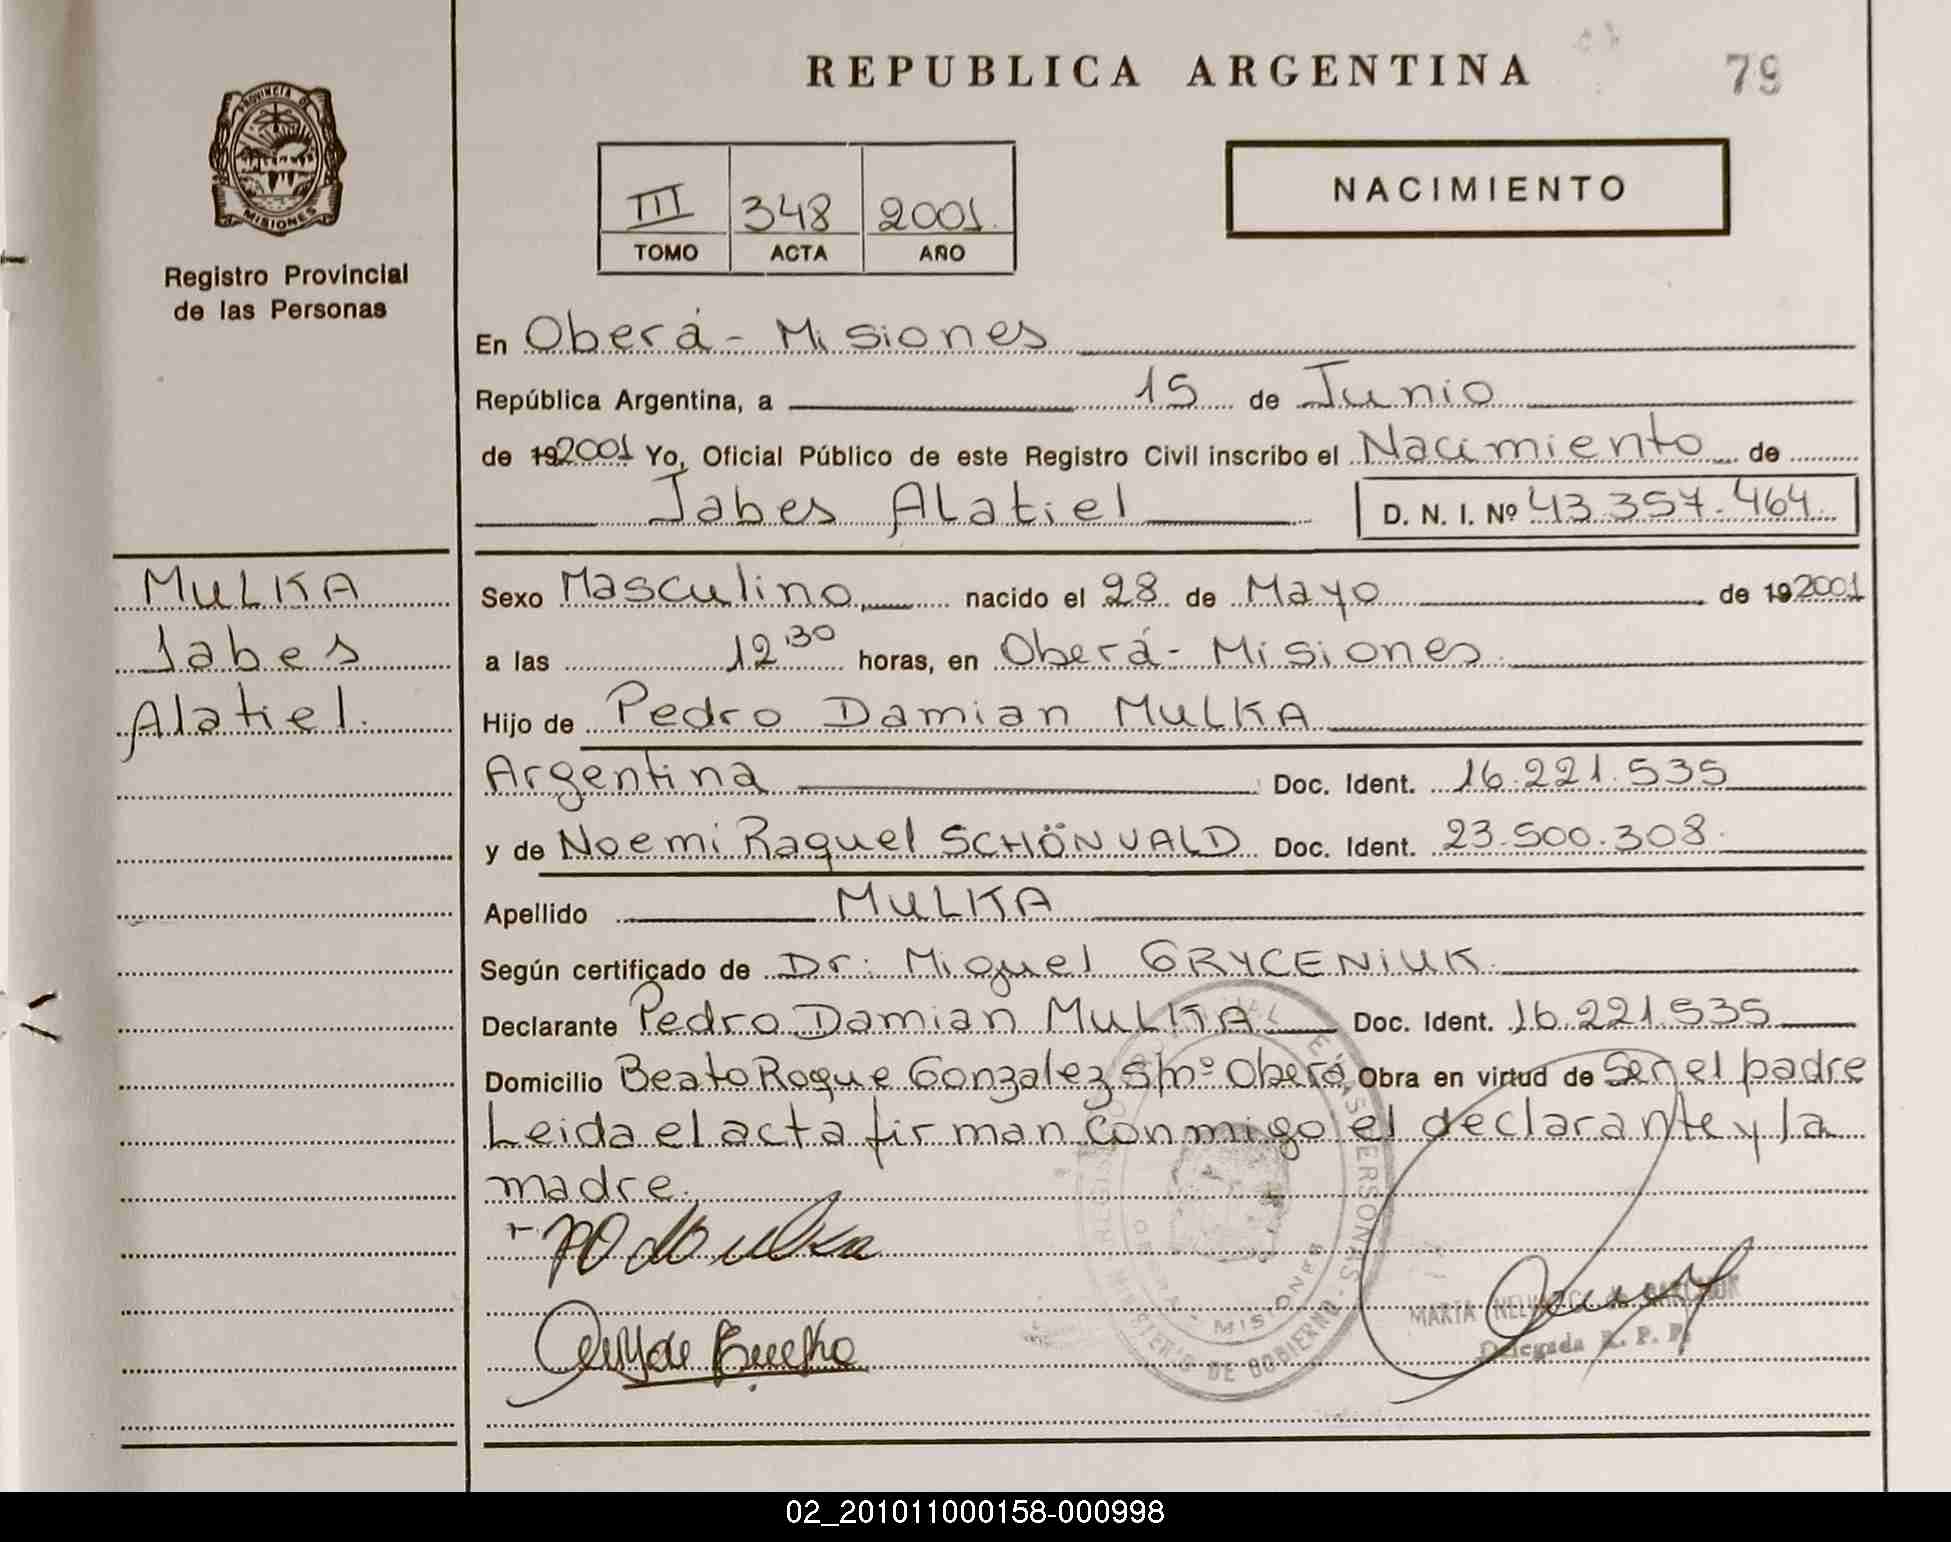 REPUBLICA ARGENTINA
79
PROVINCIA DE
MISIONES
Registro Provincial
de las Personas
III 348 2001.
TOMO ACTA AÑO
NACIMIENTO
En Oberá - Misiones
República Argentina, a 15 de Junio
de 192001 Yo, Oficial Público de este Registro Civil inscribo el Nacimiento de
Jabes Alatiel D. N. I. Nº 43.357.464
MULKA
Jabes
Alatiel.
Sexo Masculino nacido el 28 de Mayo de 192001
a las 12,30 horas, en Oberá - Misiones
Hijo de Pedro Damian MULKA
Argentina Doc. Ident. 16.221.535
y de Noemi Raquel SCHÖNVALD Doc. Ident. 23.500.308.
Apellido MULKA
Según certificado de Dr. Miguel GRYCENIUK
Declarante Pedro Damian MULKA Doc. Ident. 16.221.535
Domicilio Beato Roque Gonzalez S/Nº Oberá Obra en virtud de Ser el padre
Leida el acta firman conmigo el declarante y la
madre.
MINISTERIO DE GOBIERNO
MISIONES
MARTA
Delegada R. P. P.
02_201011000158-000998